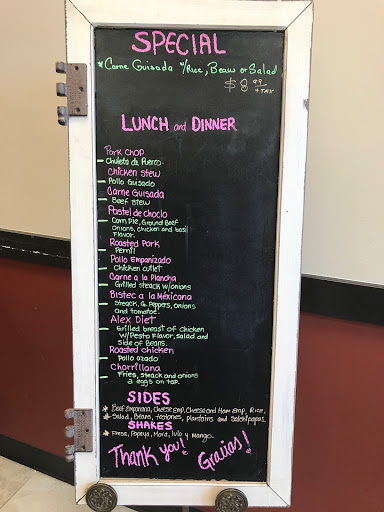 SPECIAL
*Carne Guisada w/Rice, Beans or Salad
$8.99
+TAX
LUNCH and DINNER
Pork Chop
Chuleta de Puerco
Chicken Stew
Pollo Guisado
Carne Guisada
Beef Stew
Pastel de choclo
Corn Pie, Ground Beef
Onions, chicken and basil
Flavor.
Roasted Pork
Pernil
Pollo Empanizado
Chicken cutlet
Carne a la Plancha
Grilled steack w/onions
Bistec a la Méxicana
Streack, G. Peppers, onions
and tomatoe.
Alex Diet
Grilled breast of Chicken
w/Pesto Flavor, salad and
Side of Beans.
Roasted Chicken
Pollo azado
Chorrillana
Fries, streack and onions
2 eggs on top.
SIDES
*Beef empanana, Cheese Emp, Cheese and Ham Emp, Rice,
*Salad, Beans, tostones, plantains and Salchipapas.
SHAKES
*Fresa, Papaya, Mora, lulo y mango.
Thank you! Gracias!